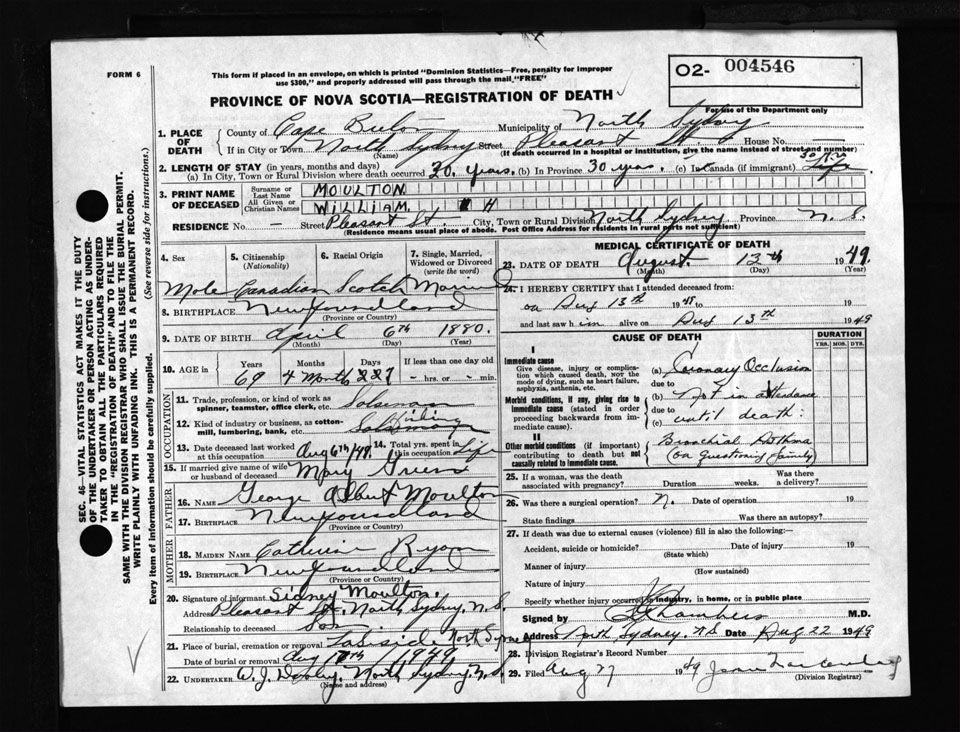 FORM 6
This form if placed in an envelope, on which is printed "Dominion Statistics—Free, penalty for improper
use $300," and properly addressed will pass through the mail "FREE"
O2- 004546
For use of the Department only
PROVINCE OF NOVA SCOTIA—REGISTRATION OF DEATH
1. PLACE OF DEATH
County of Cape Breton Municipality of North Sydney
If in City or Town North Sydney Street Pleasant St. House No.
(Name) (If death occurred in a hospital or institution, give the name instead of street and number)
2. LENGTH OF STAY (in years, months and days)
(a) In City, Town or Rural Division where death occurred 30. years. (b) In Province 30 years. (c) In Canada (if immigrant) 30 yrs
3. PRINT NAME OF DECEASED
Surname or Last Name MOULTON
All Given or Christian Names WILLIAM H
RESIDENCE No. — Street Pleasant St. City, Town or Rural Division North Sydney Province N.S.
(Residence means usual place of abode. Post Office Address for residents in rural parts not sufficient)
4. Sex
5. Citizenship (Nationality)
6. Racial Origin
7. Single, Married, Widowed or Divorced (write the word)
Male Canadian Scotch Married
8. BIRTHPLACE Newfoundland
(Province or Country)
9. DATE OF BIRTH April 6th 1880.
(Month) (Day) (Year)
10. AGE in Years Months Days If less than one day old
69 4 Months 7 - hrs. or - min.
OCCUPATION
11. Trade, profession, or kind of work as spinner, teamster, office clerk, etc. Salesman
12. Kind of industry or business, as cotton-mill, lumbering, bank, etc.
13. Date deceased last worked at this occupation Aug 6th/49. 14. Total yrs. spent in this occupation Life
15. If married give name of wife or husband of deceased Mary Green
FATHER
16. NAME George Albert Moulton
17. BIRTHPLACE Newfoundland
(Province or Country)
MOTHER
18. MAIDEN NAME Catherine Ryan
19. BIRTHPLACE Newfoundland
(Province or Country)
20. Signature of informant Sidney Moulton.
Address Pleasant St. North Sydney, N.S.
Relationship to deceased Son
21. Place of burial, cremation or removal Lakeside North Sydney
Date of burial or removal Aug 1949
22. UNDERTAKER W. J. Dooley, North Sydney, N.S.
(Name and address)
MEDICAL CERTIFICATE OF DEATH
23. DATE OF DEATH August 13th 1949.
(Month) (Day) (Year)
24. I HEREBY CERTIFY that I attended deceased from:
on Aug 13th 19 to 19
and last saw him alive on Aug 13th 1949
CAUSE OF DEATH
DURATION
YRS. MOS. DYS.
I
Immediate cause
Give disease, injury or complication which caused death, NOT the mode of dying, such as heart failure, asphyxia, asthenia, etc.
(a) Coronary Occlusion
due to
Morbid conditions, if any, giving rise to immediate cause (stated in order proceeding backwards from immediate cause).
(b) Not in attendance
due to
(c) until death:
II
Other morbid conditions (if important) contributing to death but not causally related to immediate cause.
Bronchial Asthma
(on questioning family)
25. If a woman, was the death associated with pregnancy? Duration weeks. Was there a delivery?
26. Was there a surgical operation? N. Date of operation 19
State findings Was there an autopsy?
27. If death was due to external causes (violence) fill in also the following:—
Accident, suicide or homicide? Date of injury 19
(State which)
Manner of injury
(How sustained)
Nature of injury
Specify whether injury occurred in industry, in home, or in public place
Signed by Chambers M.D.
Address North Sydney, N.S. Date Aug 22 1949
28. Division Registrar's Record Number
29. Filed Aug 27 1949
(Division Registrar)
SEC. 46—VITAL STATISTICS ACT MAKES IT THE DUTY
OF THE UNDERTAKER OR PERSON ACTING AS UNDER-
TAKER TO OBTAIN ALL THE PARTICULARS REQUIRED
IN THE "REGISTRATION OF DEATH" AND TO FILE THE
SAME WITH THE DIVISION REGISTRAR WHO SHALL ISSUE THE BURIAL PERMIT.
WRITE PLAINLY WITH UNFADING INK. THIS IS A PERMANENT RECORD.
Every item of information should be carefully supplied. (See reverse side for instructions.)